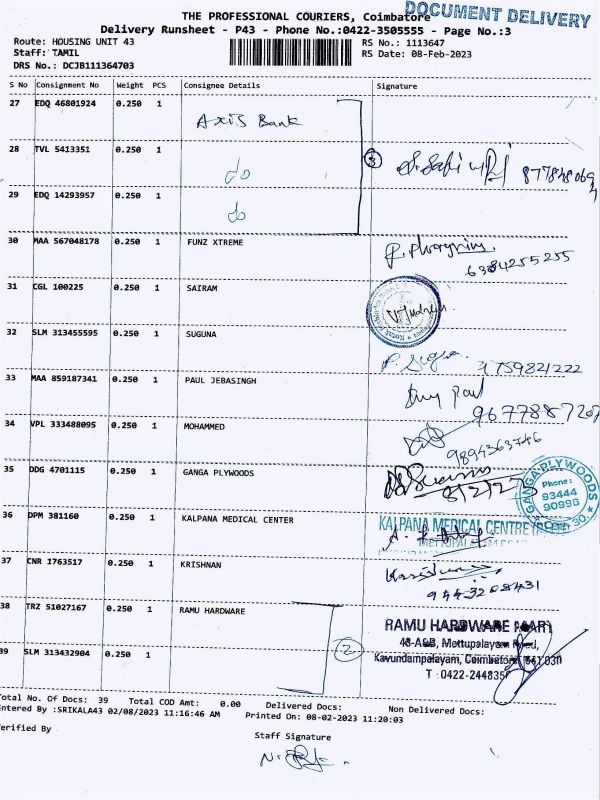 THE PROFESSIONAL COURIERS, Coimbatore
DOCUMENT DELIVERY
Delivery Runsheet - P43 - Phone No.:0422-3505555 - Page No.:3
Route: HOUSING UNIT 43
RS No.: 1113647
Staff: TAMIL
RS Date: 08-Feb-2023
DRS No.: DCJB111364703
S No Consignment No Weight PCS Consignee Details Signature
27 EDQ 46801924 0.250 1 Axis Bank
28 TVL 5413351 0.250 1 do
3
29 EDQ 14293957 0.250 1 do
30 MAA 567048178 0.250 1 FUNZ XTREME
6384255255
31 CGL 100225 0.250 1 SAIRAM
32 SLM 313455595 0.250 1 SUGUNA
33 MAA 859187341 0.250 1 PAUL JEBASINGH
34 VPL 333488095 0.250 1 MOHAMMED
9894363746
35 DDG 4701115 0.250 1 GANGA PLYWOODS
8/2/23
GANGA PLYWOODS
Phone:
93444
90996
36 DPM 381160 0.250 1 KALPANA MEDICAL CENTER
KALPANA MEDICAL CENTRE
37 CNR 1763517 0.250 1 KRISHNAN
9443208431
38 TRZ 51027167 0.250 1 RAMU HARDWARE
RAMU HARDWARE
48-A&B, Mettupalayam Road,
39 SLM 313432904 0.250 1
2
Kavundampalayam, Coimbatore 641 030
T 0422-244835
Total No. Of Docs: 39 Total COD Amt: 0.00 Delivered Docs: Non Delivered Docs:
Entered By :SRIKALA43 02/08/2023 11:16:46 AM Printed On: 08-02-2023 11:20:03
Verified By
Staff Signature